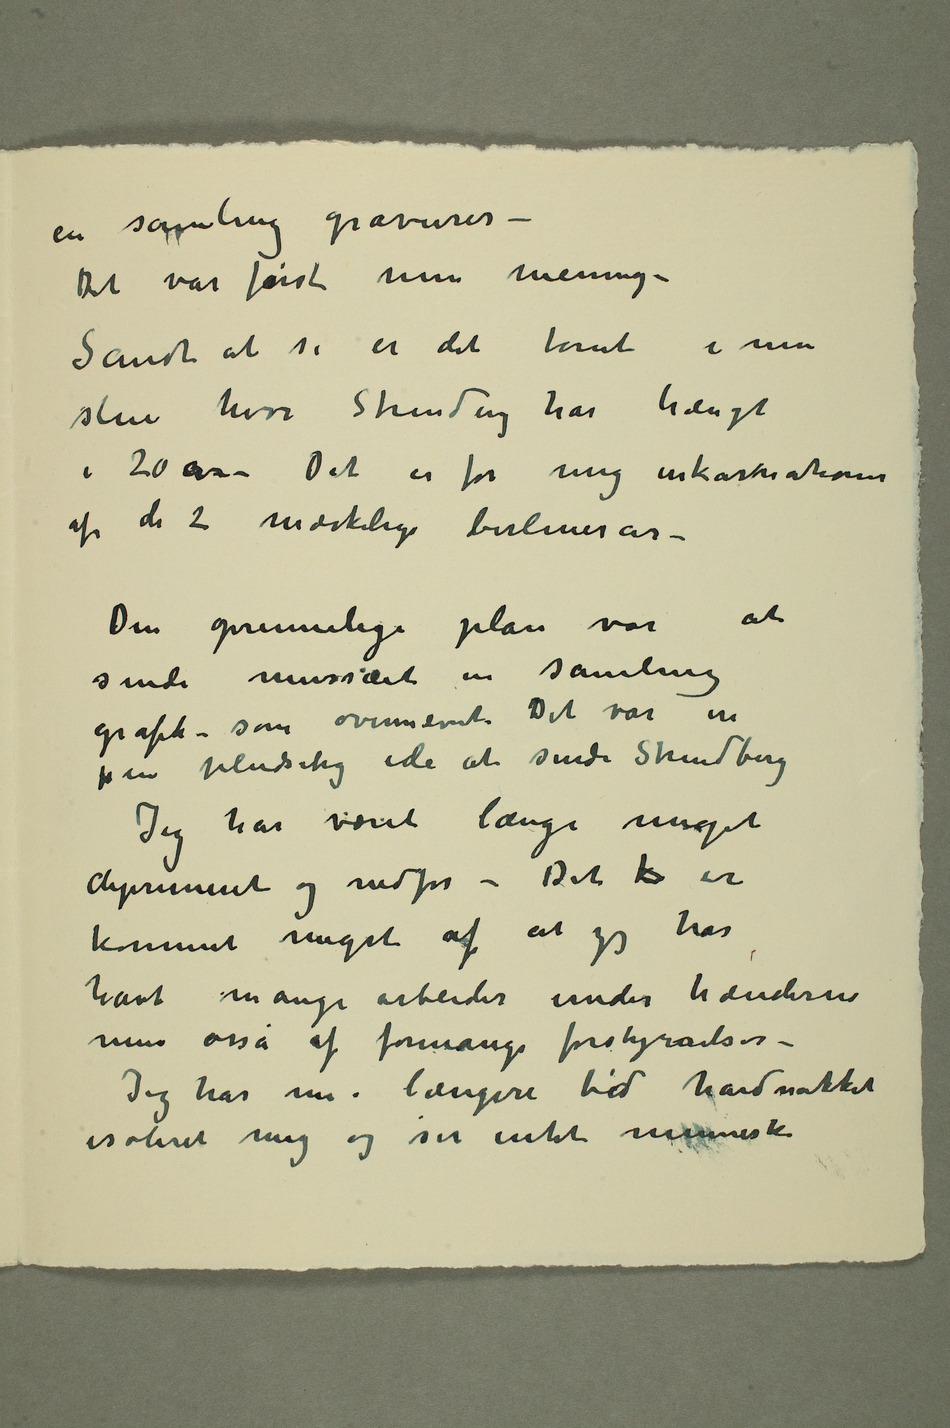 en samling gravurer –
Det var først min mening –
Sandt at si er det tomt i min
stue hvor Strindberg har hængt
i 20 år – Det er for mig inkarnationen
af de 2 mærkelige berlinerår –
Den oprinnelige plan var at
sende musæet en samling
grafik – som ovennævnt Det var en
en pludselig ide at sende Strindberg
Jeg har været længe meget
deprimeret og nedfor – Det er
kommet meget af at jeg har
havt mange arbeider under hænderne
men også af formange forstyrrelser –
Jeg har nu i længere tid hardnakket
isoleret mig og ser intet menneske